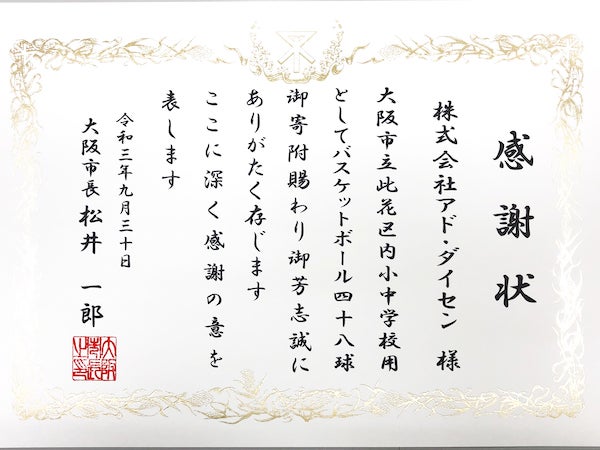 感謝状
株式会社アド・ダイセン 様
大阪市立此花区内小中学校用
としてバスケットボール四十八球
御寄附賜わり御芳志誠に
ありがたく存じます
ここに深く感謝の意を
表します
令和三年九月三十日
大阪市長 松井 一郎
大阪市長之印